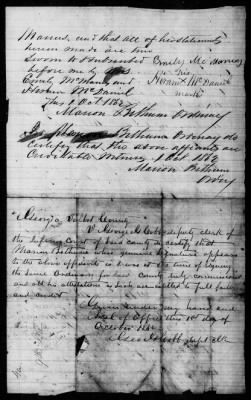 Marcus, and that all of his statements
herein made are true
Sworn to & subscribed Emily Mc
before me by his
Emily McManus and Hiram X McDaniel
Hiram McDaniel mark
this 1 Oct 1862
Marion Bethune Ordinary
I Marion Bethune Ordinary do
certify that the above affiants are
Creditable witnesses 1 Oct 1862
Marion Bethune
Ordry
Georgia Talbot County
I George N deputy clerk of
the Superior Court of said county do certify that
Marion Bethune whose genuine signature appears
to the above affidavit is and was at the time of signing
the same Ordinary for said County duly commissioned
and all his attestations as such are entitled to full faith
and credit
Given under my hand and
Seal of Office this 1st day of
October 1862
Dept Clk